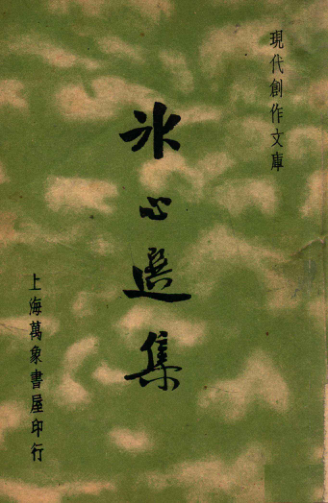 現代創作文庫
冰心選集
上海萬象書屋印行